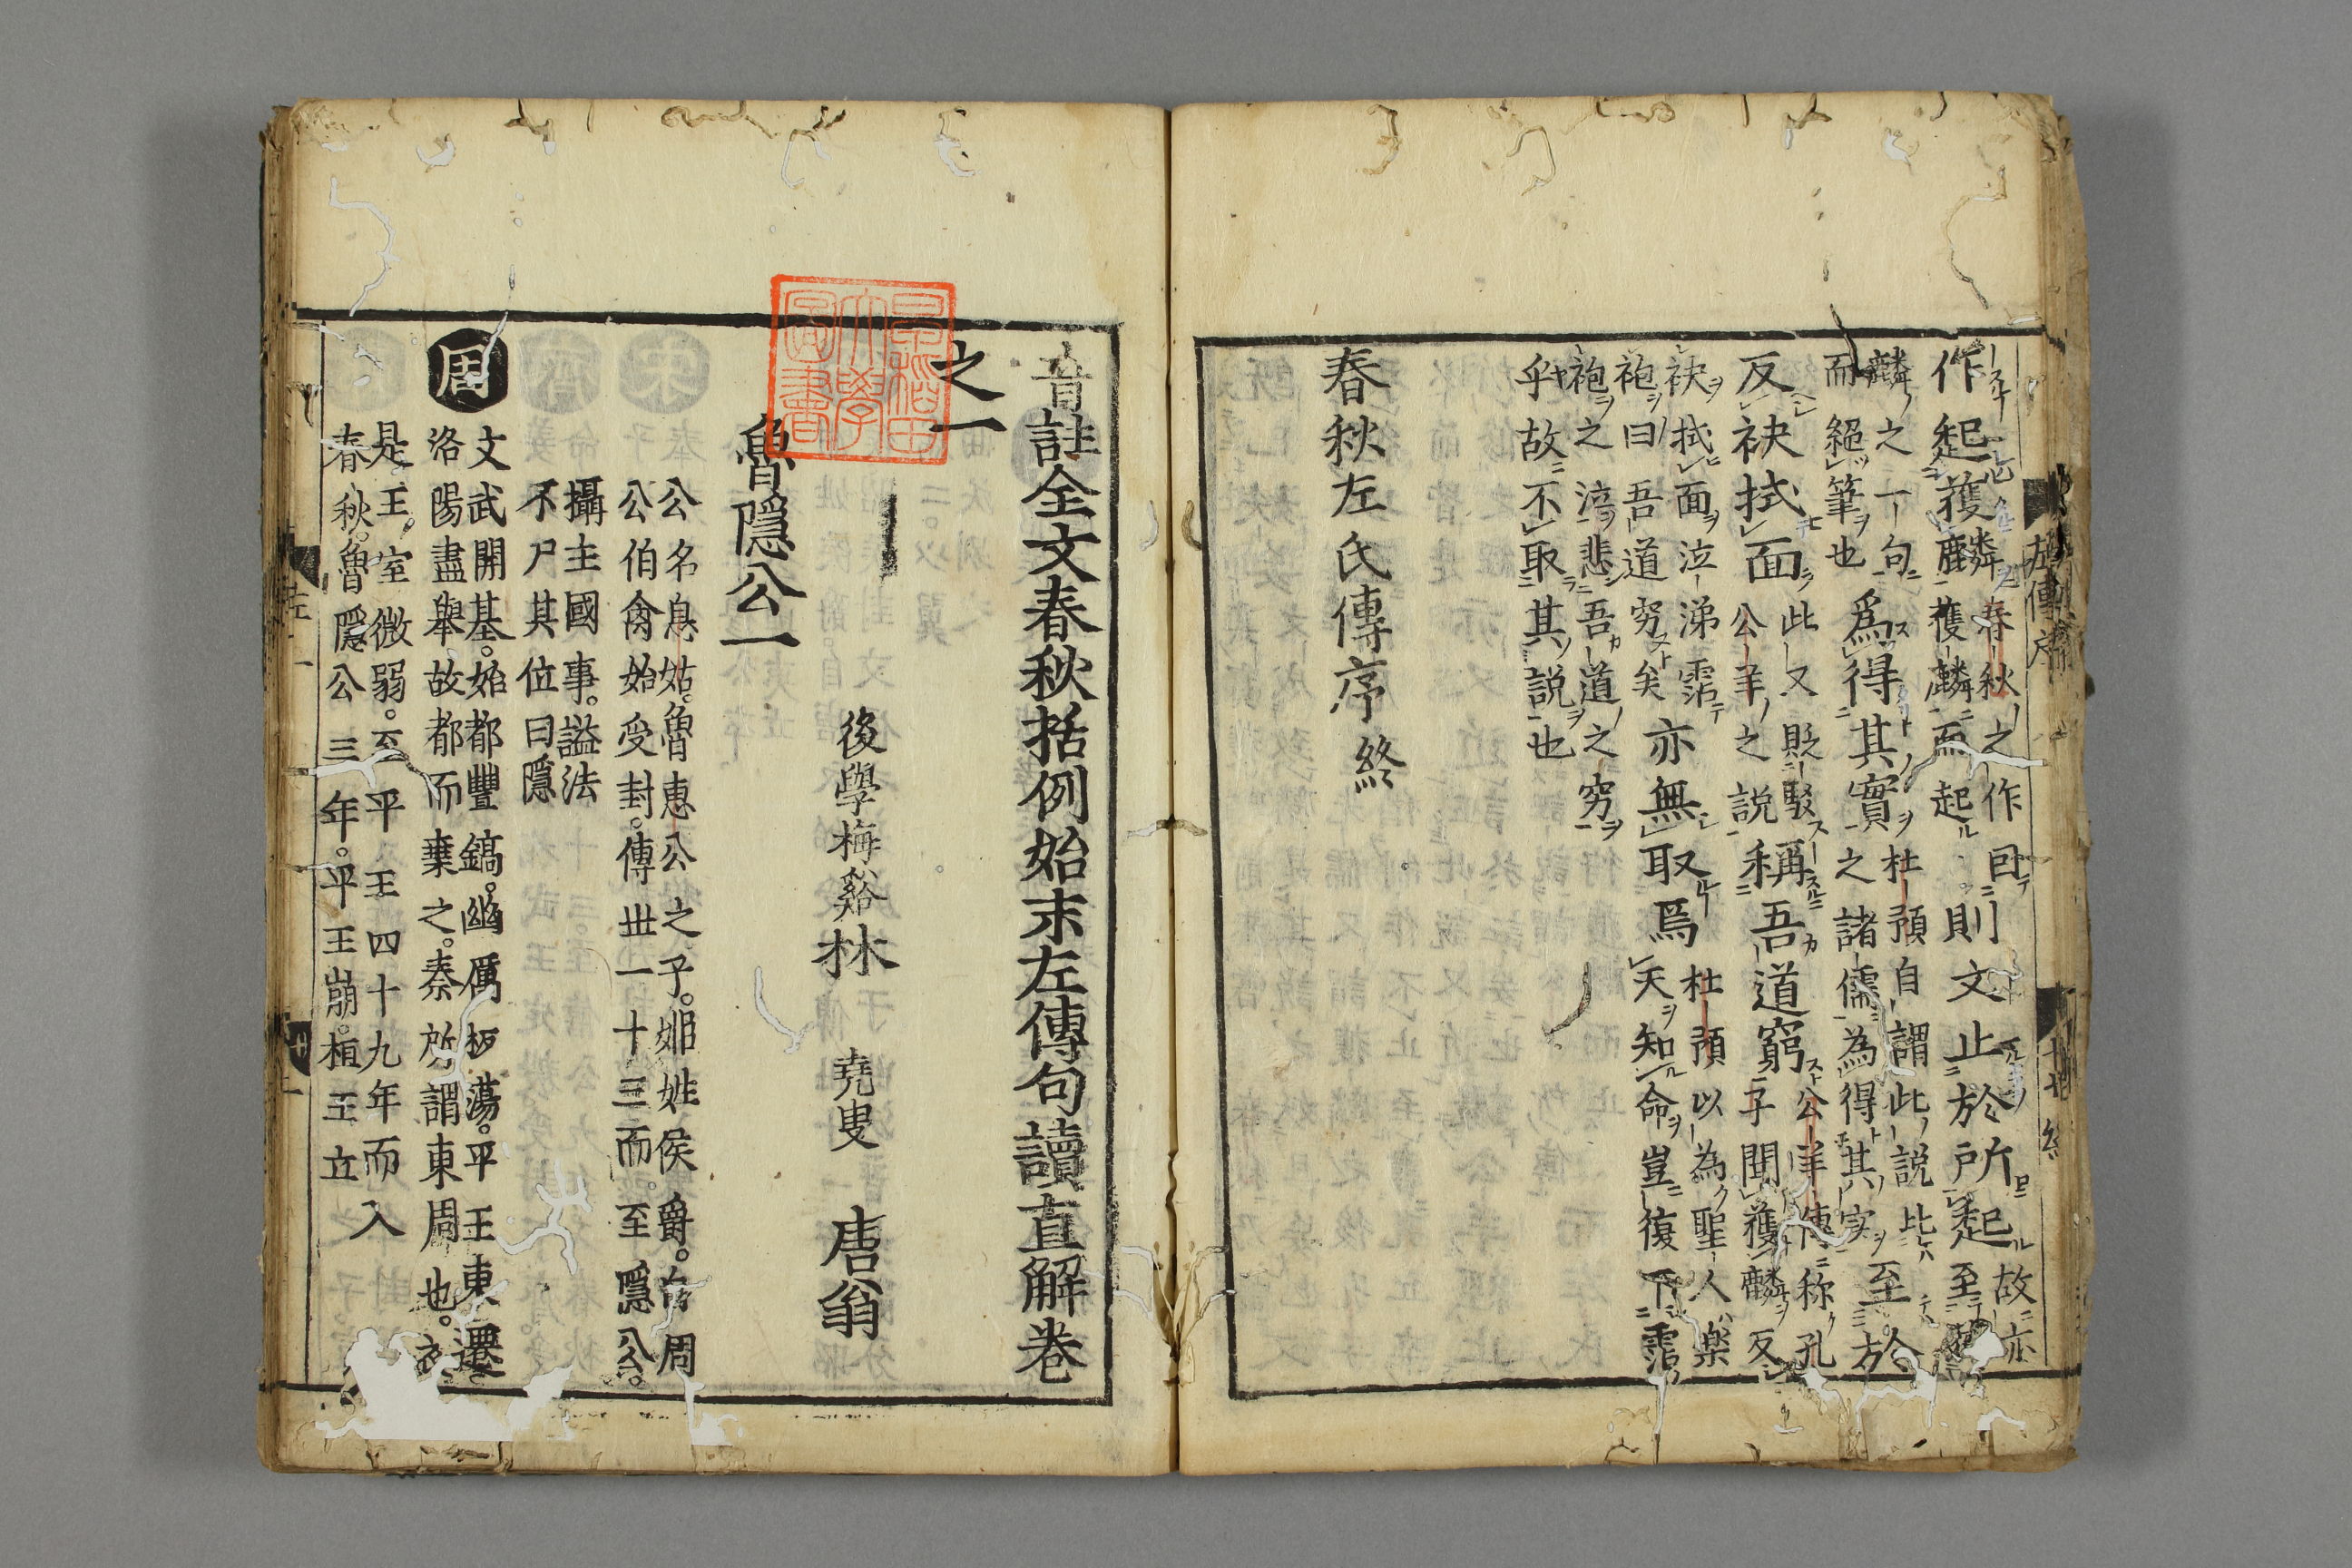 作起獲麟春秋之作因
獲麟而起則文止於所起故亦
至獲
麟之一句
而絕筆也爲得其實杜預自謂此說比
之諸儒為得其実至於
反袂拭面此又貶駁
公羊之說稱吾道窮公羊傳称孔
子聞獲麟反
袂拭面泣涕霑
袍曰吾道窮矣亦無取焉杜預以為聖人楽
天知命豈復下霑
袍之泣悲吾道之窮
乎故不取其説也
春秋左氏傳序終
左傳序
早稻田大學圖書
音註全文春秋括例始末左傳句讀直解卷
之一
後學梅谿林 堯叟 唐翁
魯隱公一
公名息姑。魯惠公之子。姬姓侯爵。自周
公伯禽始受封。傳世一十三而。至隱公。
攝主國事。謚法
不尸其位曰隱
周
文武開基。始都豐鎬。幽厲板蕩。平王東遷
洛陽盡舉故都而棄之。秦所謂東周也。
是王。室微弱。至平王四十九年而入
春秋。魯隱公三年。平王崩。桓王立
左一